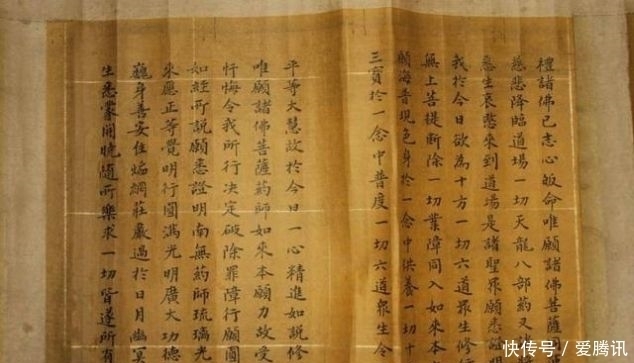 禮諸佛已志心皈命唯願諸佛菩薩
慈悲降臨道場一切天龍八部药叉
愍生哀愍來到道場是諸聖眾願悉證
我於今日欲為十方一切六道眾生修行
無上菩提斷除一切業障同入如來本
願海普現色身於一念中供養一切十
三寶於一念中普度一切六道眾生令
平等大慧故於今日一心精進如說修
唯願諸佛菩薩药師如來本願力故受
忏悔令我所行决定破除罪障行願圓
如經所說願悉證明南無药師琉璃光
來應正等覺明行圓滿光明廣大功德
巍身善安住㷔網莊嚴過於日月幽冥
生悉蒙開曉隨所樂求一切皆遂所有
快传号/爱腾讯